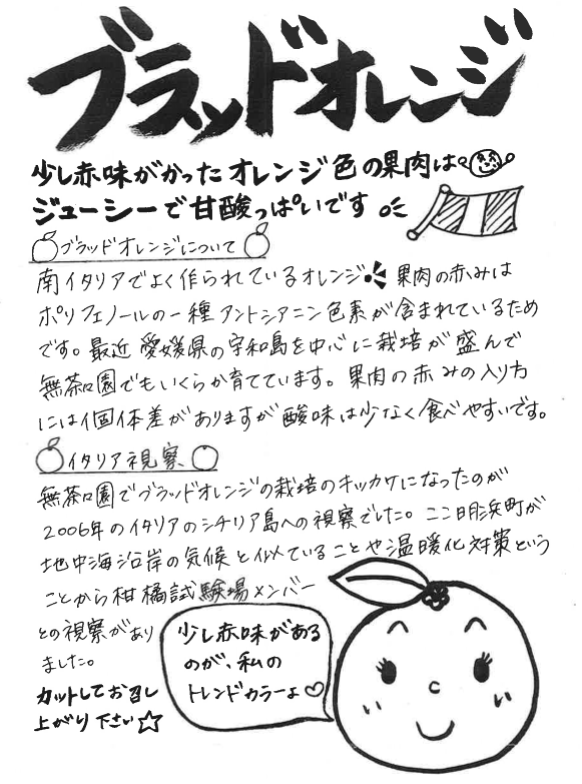 ブラッドオレンジ
少し赤味がかったオレンジ色の果肉は
ジューシーで甘酸っぱいです
ブラッドオレンジについて
南イタリアでよく作られているオレンジ 果肉の赤みは
ポリフェノールの一種アントシアニン色素が含まれているため
です。最近愛媛県の宇和島を中心に栽培が盛んで
無茶々園でもいくらか育てています。果肉の赤みの入り方
には個体差がありますが酸味は少なく食べやすいです。
イタリア視察
無茶々園でブラッドオレンジの栽培のキッカケになったのが
2006年のイタリアのシチリア島への視察でした。ここ明浜町が
地中海沿岸の気候と似ていることや温暖化対策という
ことから柑橘試験場メンバー
との視察があり
ました。
カットしてお召し
上がり下さい☆
少し赤味がある
のが、私の
トレンドカラーよ♡